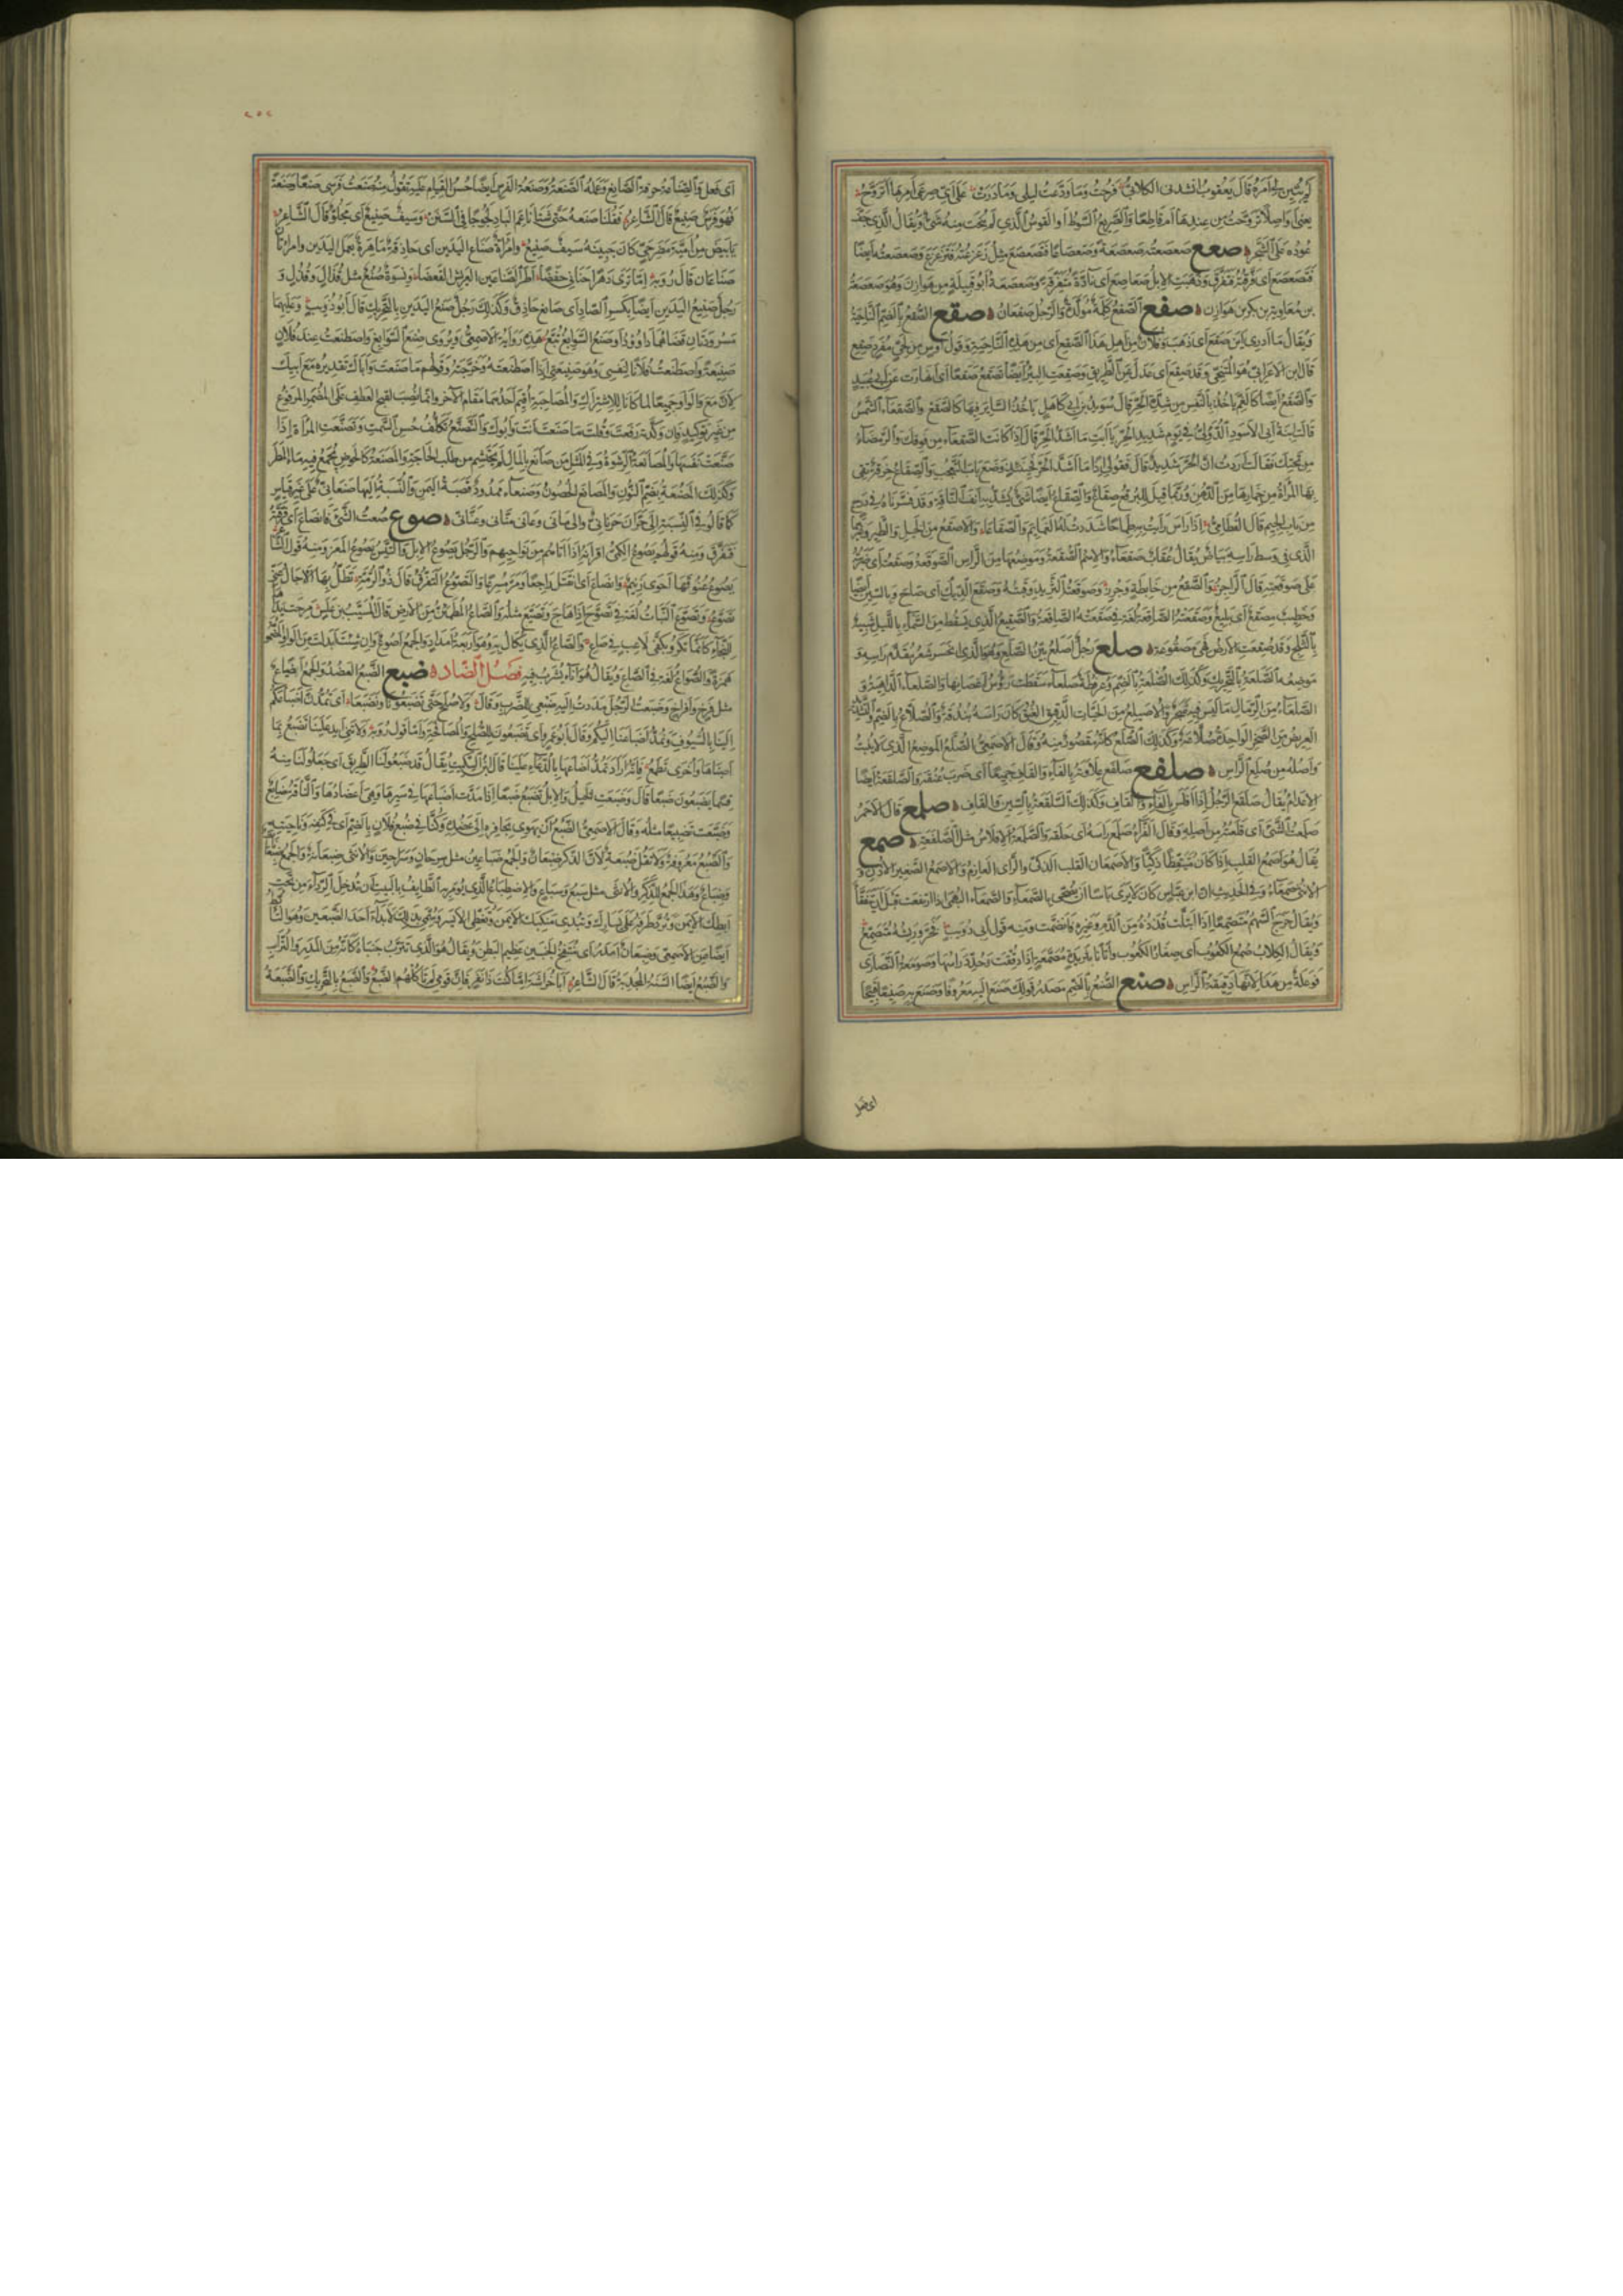 لم يبين لي امره قال يعقوب انشدني الكلابي فرحت وما ودعت ليلى وما درت على اي صرعي امرها اتروح
يعني واصلا تروحت من عندها ام قاطعا والصريع السوط او القوس الذي لم ينحت منه شيء ويقال الذي جف
عوده على الشجر صعع صعصعته صعصعة وصعصاعا فتصعصع مثل زعزعته فتزعزع وصعصعته ايضا
فتصعصع اي فرقته فتفرق وذهبت الابل صعاصع اي نادة متفرقة وصعصعة ابو قبيلة من هوازن وهو صعصعة
بن معاوية بن بكر بن هوازن صفع الصفع كلمة مولدة والرجل صفعان صقع الصقع بالضم الناحية
ويقال ما ادري اين صقع اي ذهب وفلان من اهل هذا الصقع اي من هذه الناحية وقول اوس من حي مفرد صقع
قال ابن الاعرابي هو المتنحي وقد صقع اي عدل عن الطريق وصقعت البئر ايضا تصقع صقعا اي انهارت عن ابي عبيد
والصقع ايضا كالغم ياخذ بالنفس من شدة الحر قال سويد بن ابي كاهل ياخذ السائر فيها كالصقع والصقعاء الشمس
قالت ابنة ابي الاسود الدؤلي في يوم شديد الحر يا ابت ما اشد الحر قال اذا كانت الصقعاء من فوقك والرمضاء
من تحتك فقالت اردت ان الحر شديد قال فقولي اذا ما اشد الحر فحينئذ وضع باب التعجب والصقاع خرقة تقي
بها المراة من خمارها من الدهن وربما قيل للبرقع صقاع والصقاع ايضا شيء يشد به انف الناقة وقد فسرناه في درج
من باب الجيم قال القطامي اذا راس رايت به طماحا شددت له الغمائم والصقاعا والاصقع من الخيل والطير وغيرها
الذي في وسط راسه بياض يقال عقاب صقعاء والاسم الصقعة وموضعها من الراس الصوقعة وصقعته اي ضربته
على صوقعته قال الراجز والصقع من خابطة وجرز وصوقعت الثريد وقبته وصقع الديك اي صاح وبالسين ايضا
وخطيب مصقع اي بليغ وصقعته الصاقعة لغة في صعقته الصاعقة والصقيع الذي يسقط من السماء بالليل شبيه
بالثلج وقد صقعت الارض فهي مصقوعة صلع رجل اصلع بين الصلع وهو الذي انحسر شعر مقدم راسه و
موضعه الصلعة بالتحريك وكذلك الصلعة بالضم وعرفطة صلعاء سقطت رؤس اغصانها والصلعاء الداهية و
الصلعاء من الرمال ما ليس فيه شجر والاصيلع من الحيات الدقيق العنق كان راسه بندقة والصلاع بالضم والتشديد
العريض من الصخر الواحدة صلاعة وكذلك الصلع كانه مقصور منه وقال الاصمعي الصلع الموضع الذي لا ينبت
واصله من صلع الراس صلفع صلفع علاوته بالفاء والقاف جميعا اي ضرب عنقه والصلفعة ايضا
الاعدام يقال صلفع الرجل اذا افلس بالفاء والقاف وكذلك السلقعة بالسين والقاف صلمع قال الاحمر
صلمعت الشيء اي قلعته من اصله وقال الفراء صلمع راسه اي حلقه والصلمعة الافلاس مثل الصلفعة صمع
يقال هو اصمع القلب اذا كان متيقظا ذكيا والاصمعان القلب الذكي والراي العازم والاصمع الصغير الاذن و
الانثى صمعاء وفي الحديث ان ابن عباس كان لا يرى باسا ان يضحي بالصمعاء والصمعاء البهمى اذا ارتفعت قبل ان تتفقا
ويقال خرج السهم متصمعا اذا ابتلت قذذه من الدم وغيره فانضمت ومنه قول ابي ذؤيب فخر وريشه متصمع
ويقال لكلاب صمع الكعوب اي صغار الكعوب واتانا بثريدة مصمعة اذا دققت وحدد راسها وصومعة النصارى
فوعلة من هذا لانها دقيقة الراس صنع الصنع بالضم مصدر قولك صنع اليه معروفا وصنع به صنيعا قبيحا
اي فعل
اي فعل والصناعة حرفة الصانع وعمله الصنعة وصنعة الفرس ايضا حسن القيام عليه تقول منه صنعت فرسي صنعا وصنعة
فهو فرس صنيع قال الشاعر فنقلنا صنعه حتى شتا ناعم البال لجوجا في السنن وسيف صنيع اي مجلو قال الشاعر
بابيض من امية مضرحي كان جبينه سيف صنيع وامراة صناع اليدين اي حاذقة ماهرة بعمل اليدين وامراتان
صناعان قال رؤبة اما تري دهرا حناني حفضا اطر الصناعين العريش القعضا ونسوة صنع مثل قذال وقذل و
رجل صنيع اليدين ايضا بكسر الصاد اي صانع حاذق وكذلك رجل صنع اليدين بالتحريك قال ابو ذؤيب وعليهما
مسرودتان قضاهما داوود او صنع السوابغ تبع هذه رواية الاصمعي ويروى صنع السوابغ واصطنعت عند فلان
صنيعة واصطنعت فلانا لنفسي وهو صنيعتي اذا اصطنعته وخرجته وقولهم ما صنعت واباك تقديره مع ابيك
لان مع والواو جميعا لما كانا للاشتراك والمصاحبة اقيم احدهما مقام الاخر وانما نصب لقبح العطف على المضمر المرفوع
من غير توكيد فان وكدته رفعت وقلت ما صنعت انت وابوك والتصنع تكلف حسن السمت وتصنعت المراة اذا
صنعت نفسها والمصانعة الرشوة وفي المثل من صانع بالمال لم يحتشم من طلب الحاجة والمصنعة كالحوض يجمع فيه ماء المطر
وكذلك المصنعة بضم النون والمصانع الحصون وصنعاء ممدود قصبة اليمن والنسبة اليها صنعاني على غير قياس
كما قالوا في النسبة الى حران حرناني والى ماني وعاني مناني وعناني صوع صعت الشيء فانصاع اي فرقته
فتفرق ومنه قولهم يصوع الكمي اقرانه اذا اتاهم من نواحيهم والرجل يصوع الابل والتيس يصوع المعز ومنه قول الشاعر
يصوع عنوقها احوى زنيم وانصاع اي انفتل راجعا ومر مسرعا والتصوع التفرق قال ذو الرمة تظل بها الاجال عني
تصوع وتصوع النبات لغة في تصوح اذا هاج وتصيع مثله والصاع المطمئن من الارض قال المسيب بن علس مرحت يداها
للنجاء كانما تكرو بكفي لاعب في صاع والصاع الذي يكال به وهو اربعة امداد والجمع اصوع وان شئت ابدلت من الواو المضمومة
همزة والصواع لغة في الصاع ويقال هو اناء يشرب فيه فصل الضاد ضبع الضبع العضد والجمع اضباع
مثل فرخ وافراخ وضبعت الرجل مددت اليه ضبعي للضرب وقال ولا صلح حتى تضبعونا ونضبعا اي تمدون اضباعكم
الينا بالسيوف ونمد اضباعنا اليكم وقال ابو عمرو اي تضبعون للصلح والمصافحة واما قول رؤبة ولا تني ايد علينا تضبع بما
اصبناها واخرى تطمع فانه اراد تمد اضباعها بالدعاء علينا قال ابن السكيت يقال قد ضبعوا لنا الطريق اي جعلوا لنا منه
قسما يضبعون ضبعا قال وضبعت الخيل والابل تضبع ضبعا اذا مدت اضباعها في سيرها وهي اعضادها والناقة ضابع
وضبعت تضبيعا مثله وقال الاصمعي الضبع ان يهوي بحافره الى عضده وكنا في ضبع فلان بالضم اي في كنفه وناحيته
والضبع معروفة ولا تقل ضبعة لان الذكر ضبعان والجمع ضباعين مثل سرحان وسراحين والانثى ضبعانة والجمع ضبعانات
وضباع وهذا الجمع للذكر والانثى مثل سبع وسباع والاضطباع الذي يؤمر به الطائف بالبيت ان تدخل الرداء من تحت
ابطك الايمن وترد طرفه على يسارك وتبدي منكبك الايمن وتغطي الايسر وسمي بذلك لابداء احد الضبعين وهو التابط
ايضا عن الاصمعي وضبعان امدر اي منتفخ الجنبين عظيم البطن ويقال هو الذي تترب جنباه كانه من المدر والتراب
والضبع ايضا السنة المجدبة قال الشاعر ابا خراشة اما كنت ذا نفر فان قومي لم تاكلهم الضبع والضبع بالتحريك والضبعة